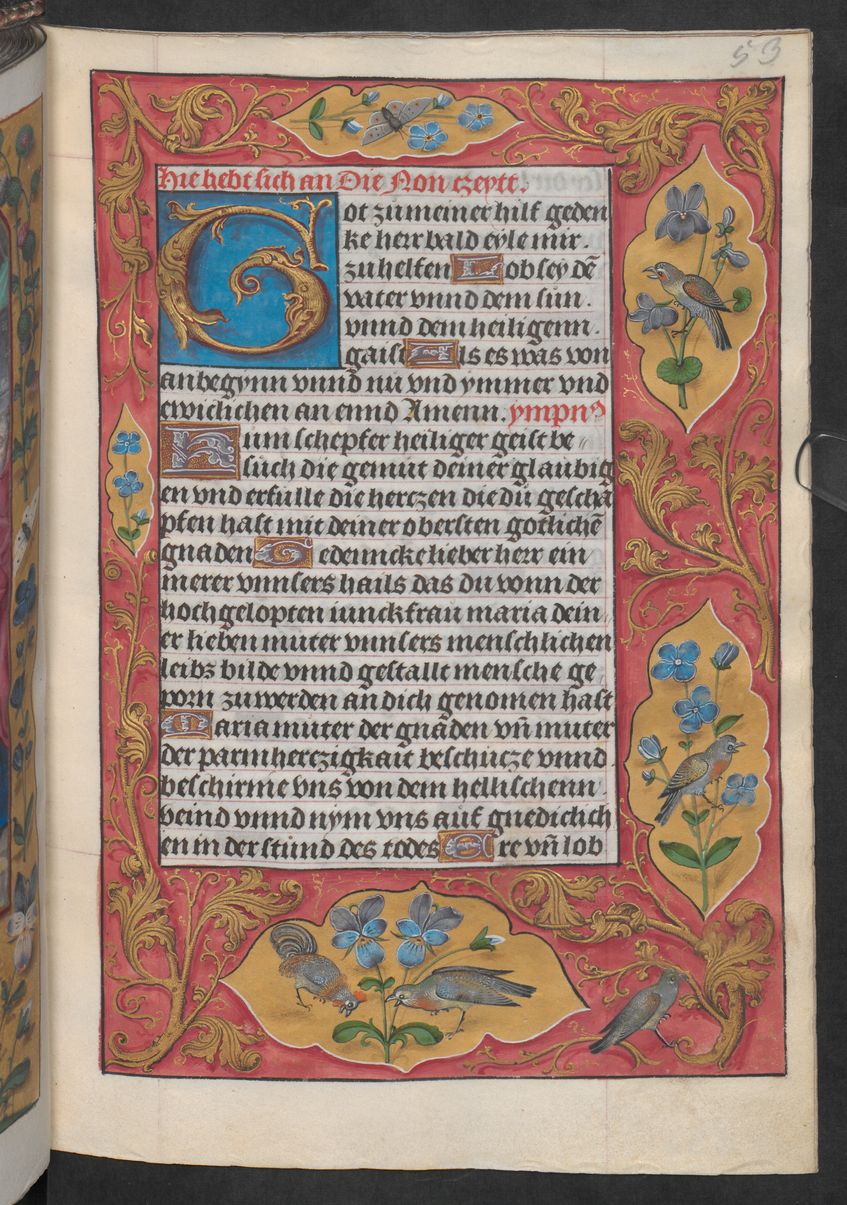 53
Hie hebt sich an Die Non czeytt.
Got zu meiner hilf geden
ke herr bald eyle mir.
zu helfen Lob sey dē
vater vnnd dem sun.
vnnd dem heiligenn.
gaist Als es was von
anbegynn vnnd nu vnd ymmer vnd
ewicklichen an ennd Amenn. ympnꝰ
Kum schepfer heiliger geist be〃
such die gemut deiner glaubig
en vnd erfulle die herczen die du gescha
pfen hast mit deiner obersten gotlichē
gnaden Gedenncke lieber herr ein
merer vnnsers hails das du vonn der
hochgelopten iunckfrau maria dein
er lieben muter vnnsers menschlichen
leibs bilde vnnd gestallt mensche ge
porn zuwerden an dich genomen hast
Maria muter der gnaden vn̄ muter
der parmherczigkait beschucze vnnd
beschirme vns von dem hellischenn
veind vnnd nym vns auf gnediclich
en in der stund des todes Ere vn̄ lob